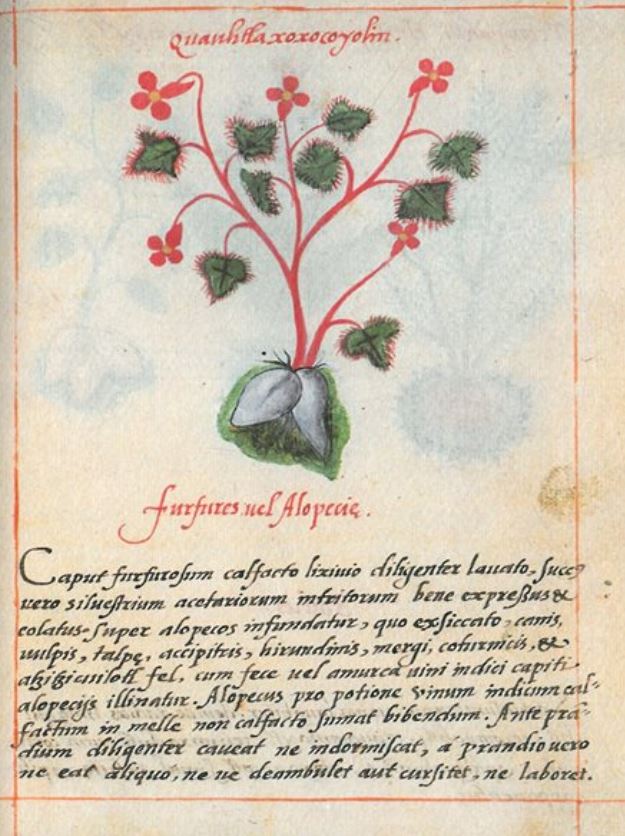 Quauhtlaxoxocoyolin.
furfures vel Alopecię.
Caput furfurosum calfacto lixiuio diligenter lauato. Succ⁹
vero siluestrium acetariorum intritorum bene expreßus &
colatus super alopecos infundatur, quo exsiccato, canis,
vulpis, talpę, accipitris, hirundinis, mergi, coturnicis, &
atzitzicuilotl fel, cum fece uel amurca uini indici capiti
alopecijs illinatur. Alopecus pro potione vinum indicum cal-
factum in melle non calfacto sumat bibendum. Ante pran-
dium diligenter caueat ne indormiscat, á prandio uero
ne eat aliquo, ne ue deambulet aut cursitet, ne laboret.